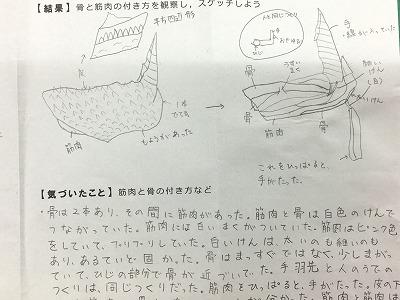 【結果】骨と筋肉の付き方を観察し，スケッチしよう
平行四辺形
皮
1本
でてる
筋肉
もようがあった
人と同じつくり
おやゆび
うすい
まく
手
・線が入っていた
骨
細い
けん
(白)
骨
筋肉
骨
けん
これをひっぱると、
手がたった。
【気づいたこと】筋肉と骨の付き方など
・骨は2本あり、その間に筋肉があった。筋肉と骨は白色のけんで
つながっていた。筋肉には白いまくがついていた。筋肉はピンク色
をしていて、プリプリしていた。白いけんは、太いのも細いのも
あり、あるていど固かった。骨はまっすぐではなく、少しまがっ
ていて、ひじの部分で骨が近づいていた。手羽先と人のうでの
つくりは、同じつくりだった。筋肉をひっぱると、手がたった。皮の下